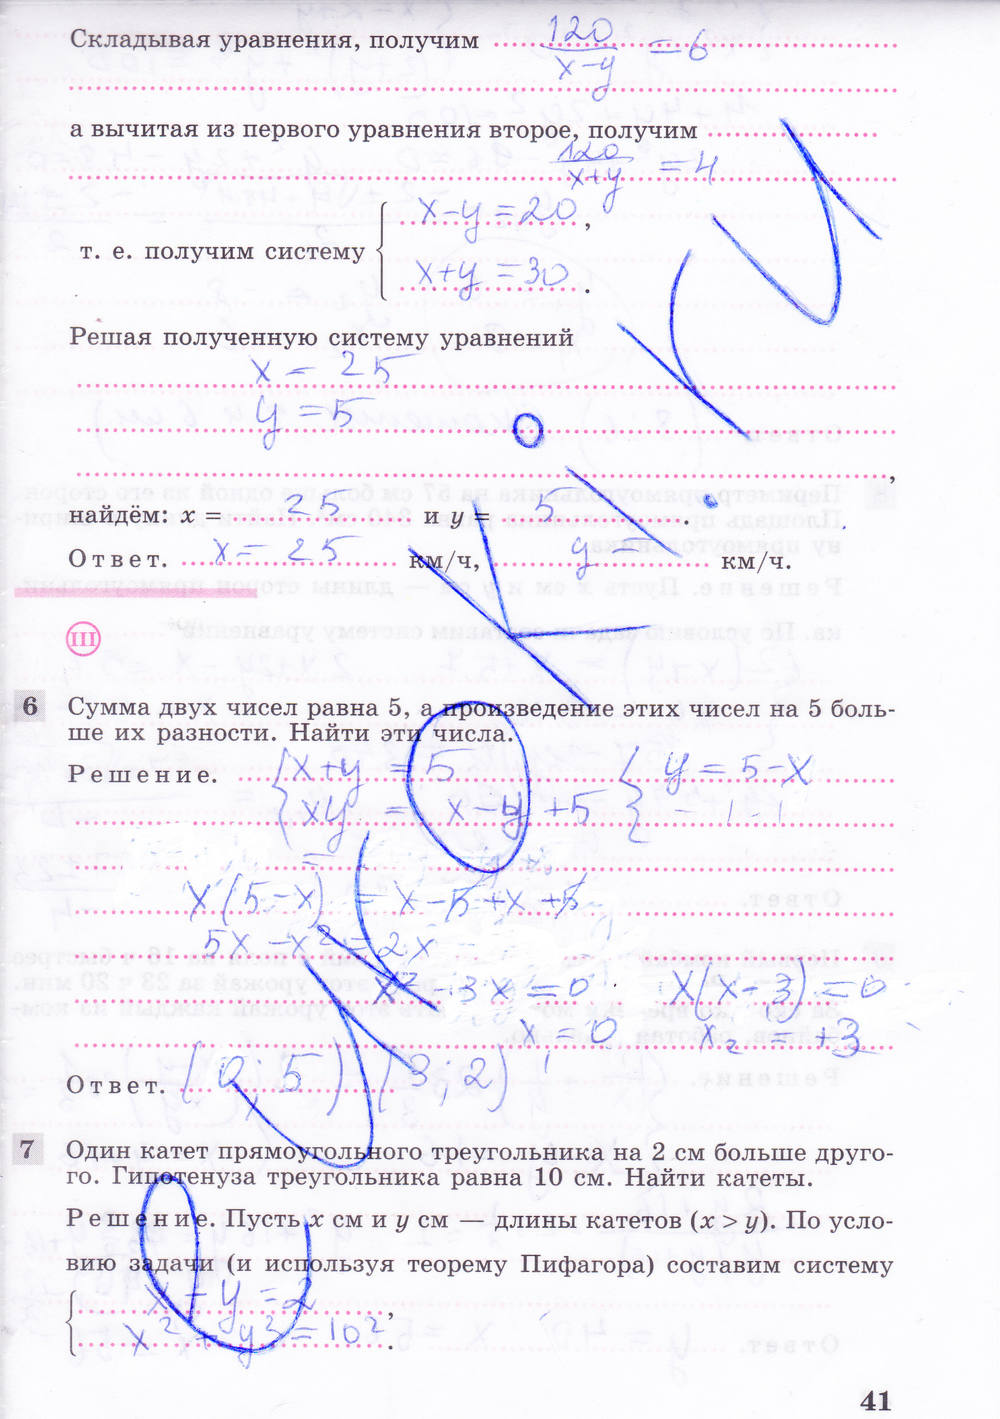 Складывая уравнения, получим 120/(x-y) = 6
а вычитая из первого уравнения второе, получим
120/(x+y) = 4
x-y=20,
т. е. получим систему
x+y=30.
Решая полученную систему уравнений
x = 25
y = 5
,
найдём: x = 25 и y = 5.
Ответ. x = 25 км/ч, y км/ч.
III
6 Сумма двух чисел равна 5, а произведение этих чисел на 5 боль-
ше их разности. Найти эти числа.
Решение. { x+y = 5 { y = 5-x
{ xy = x-y+5
x(5-x) = x-5+x+5
5x-x² = 2x
x²-3x=0 x(x-3)=0
x=0 x₂=+3
Ответ. (0; 5) (3; 2)
7 Один катет прямоугольного треугольника на 2 см больше друго-
го. Гипотенуза треугольника равна 10 см. Найти катеты.
Решение. Пусть x см и y см — длины катетов (x > y). По усло-
вию задачи (и используя теорему Пифагора) составим систему
x-y=2,
x²+y²=10².
41